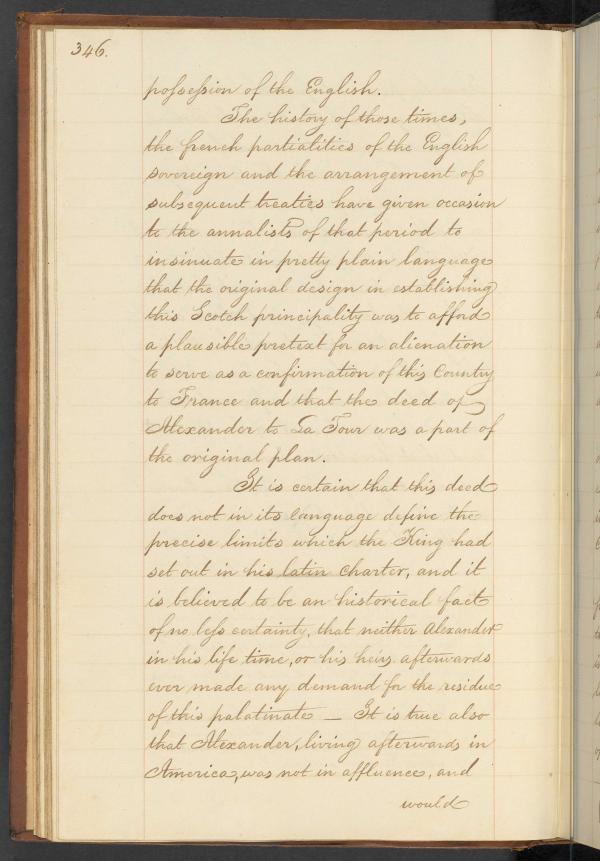 346.
possession of the English.
The history of those times,
the french partialities of the English
sovereign and the arrangement of
subsequent treaties have given occasion
to the annalists of that period to
insinuate in pretty plain language
that the original design in establishing
this Scotch principality was to afford
a plausible pretext for an alienation
to serve as a confirmation of this Country
to France and that the deed of
Alexander to La Tour was a part of
the original plan.
It is certain that this deed
does not in its language define the
precise limits which the King had
set out in his latin charter, and it
is believed to be an historical fact
of no less certainty, that neither Alexander
in his life time, or his heirs afterwards
ever made any demand for the residue
of this palatinate — It is true also
that Alexander, living afterwards in
America, was not in affluence, and
would